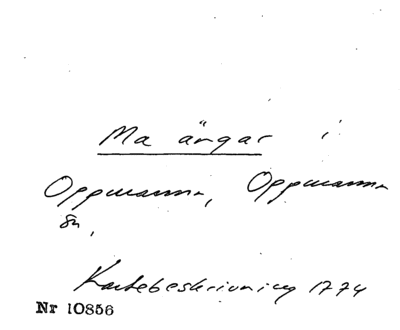 Ma ängar i
Oppmanna, Oppmanna
sn.
Kartebeskrivning 1774
Nr 10856